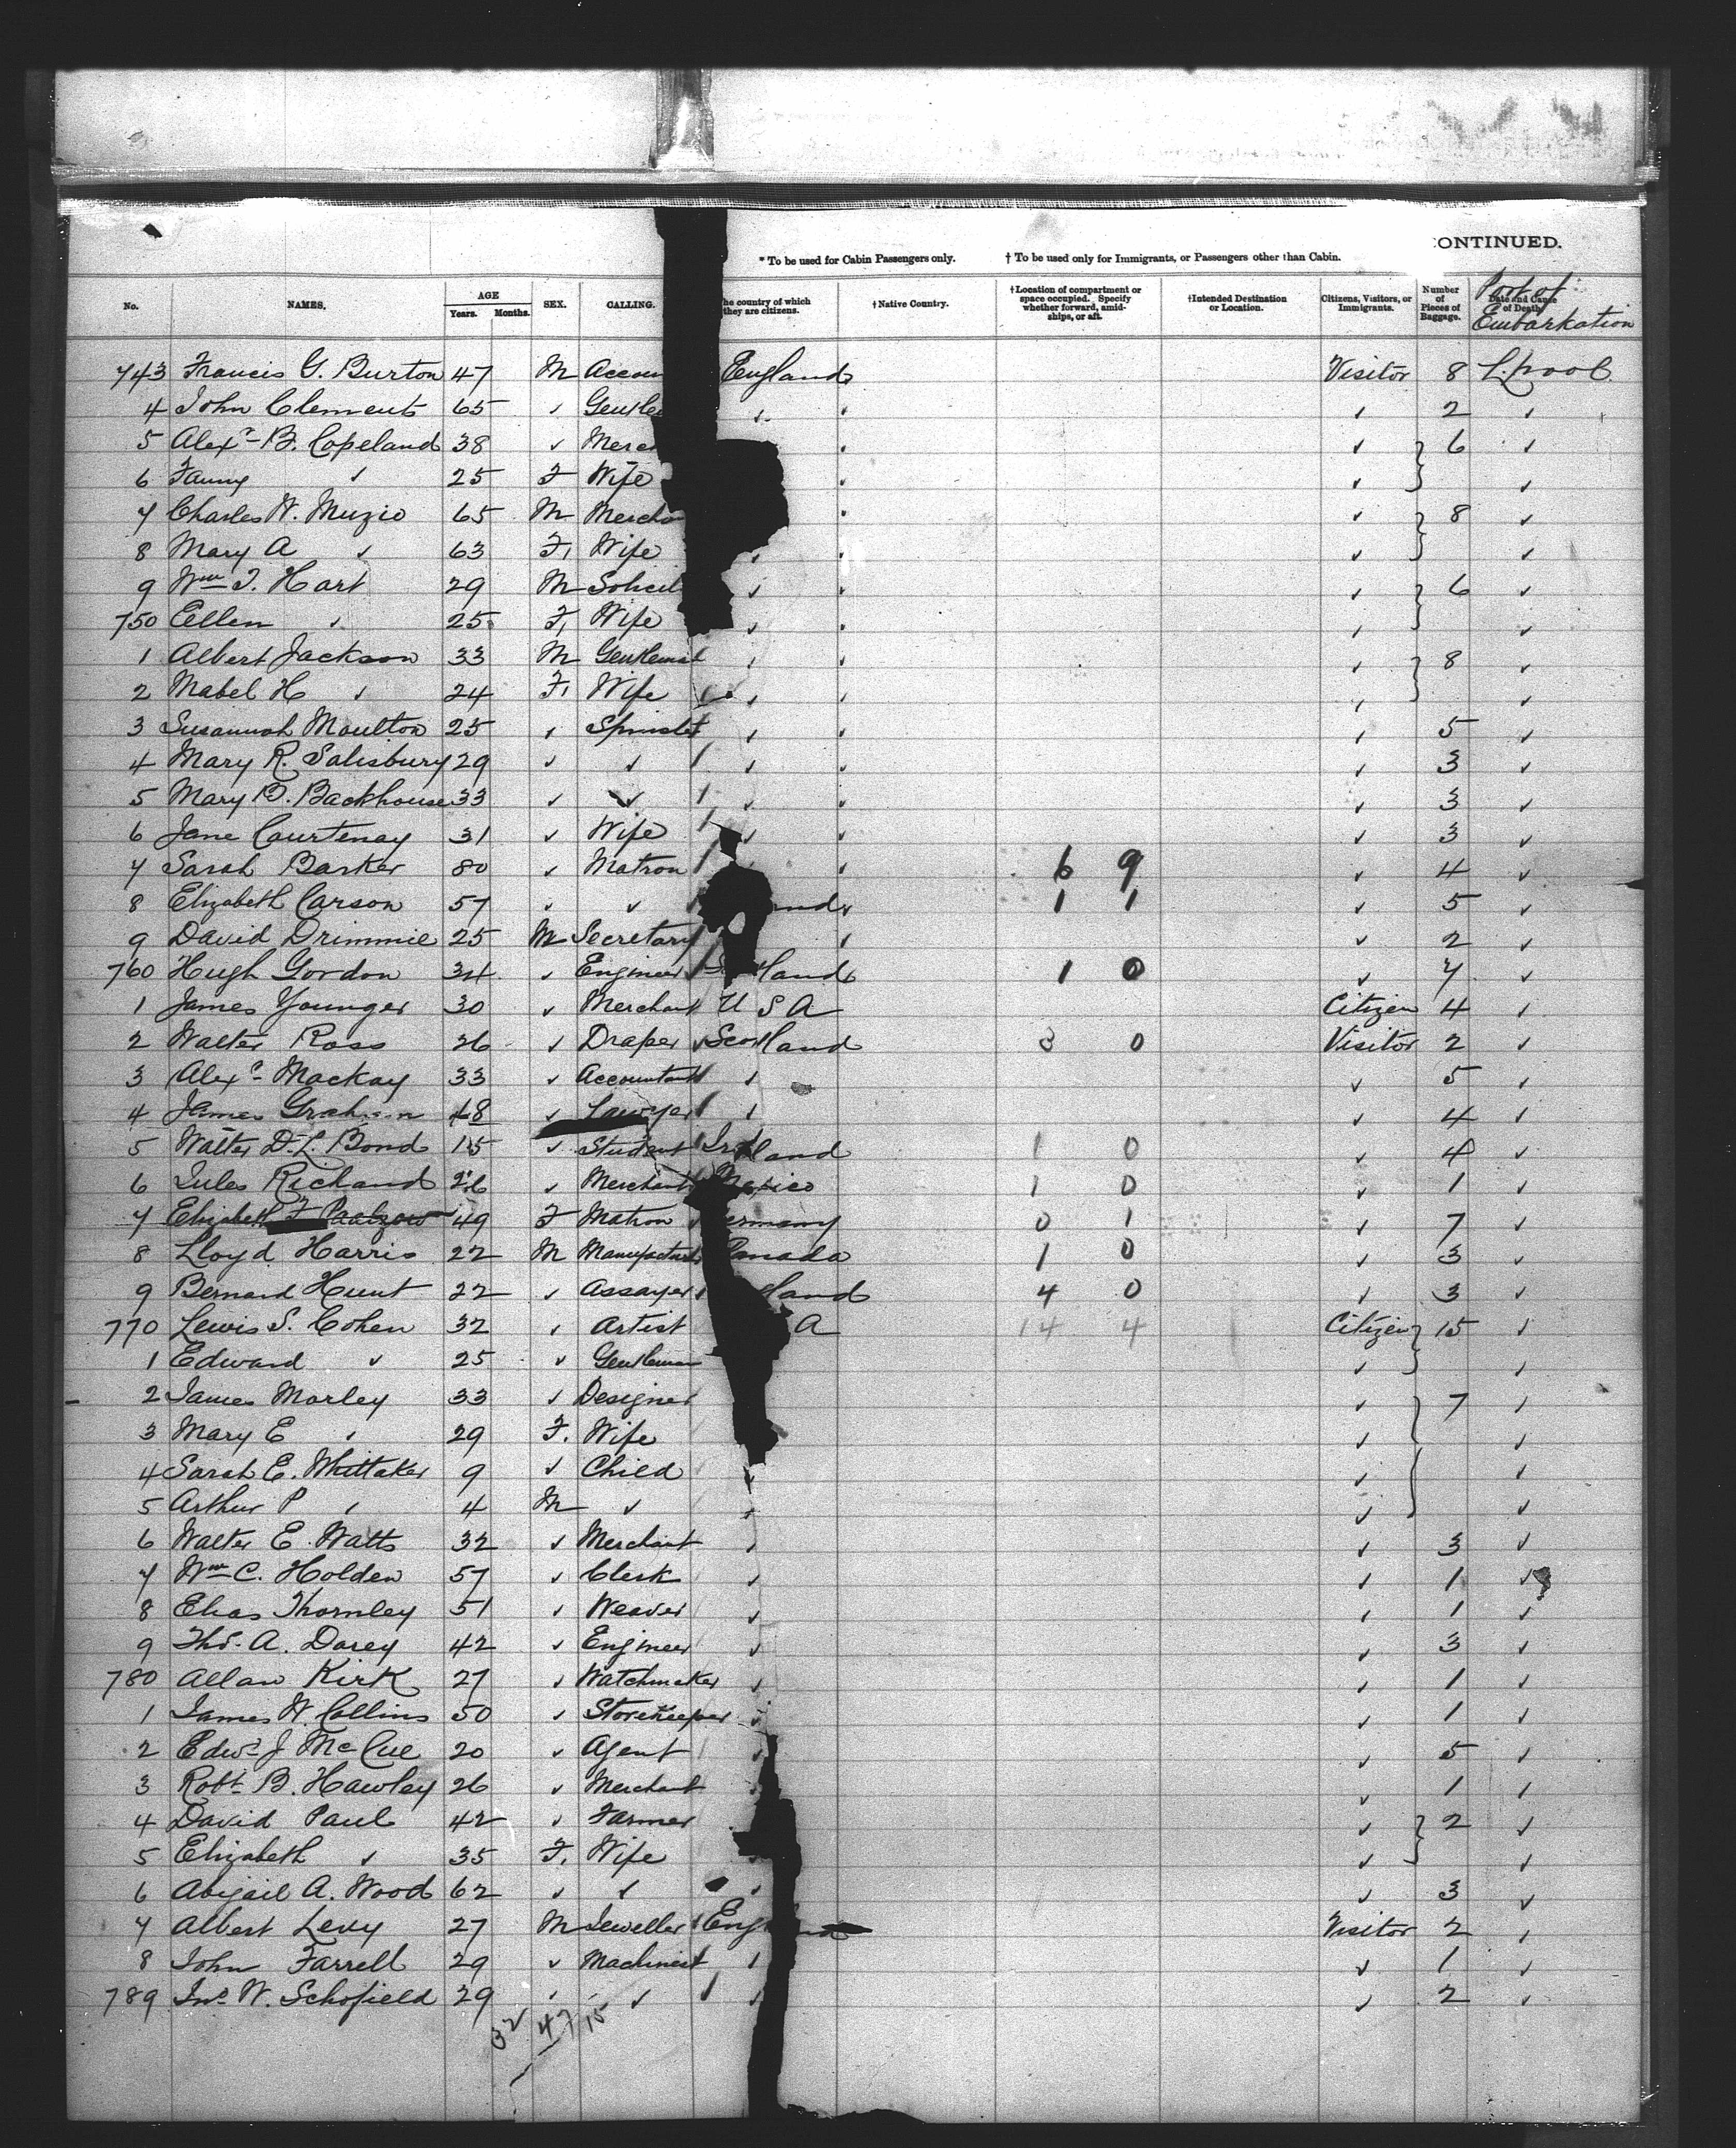 CONTINUED.
* To be used for Cabin Passengers only. † To be used only for Immigrants, or Passengers other than Cabin.
No. NAMES. AGE Years. Months. SEX. CALLING. he country of which they are citizens. †Native Country. †Location of compartment or space occupied. Specify whether forward, amidships, or aft. †Intended Destination or Location. Citizens, Visitors, or Immigrants. Number of Pieces of Baggage. Date and Cause of Death Port of Embarkation
743 Francis G. Burton 47 M Accoun England Visitor 8 L.pool
4 John Clements 65 ✓ Gentle ✓ ✓ ✓ 2 ✓
5 Alexr B. Copeland 38 ✓ Merch ✓ ✓ 6 ✓
6 Fanny ✓ 25 F Wife ✓ ✓ ✓
7 Charles W. Muzio 65 M Mercha ✓ ✓ 8 ✓
8 Mary A ✓ 63 F Wife ✓ ✓ ✓ ✓
9 Wm T. Hart 29 M Solicit ✓ ✓ ✓ 6 ✓
750 Ellen ✓ 25 F Wife ✓ ✓ ✓ ✓
1 Albert Jackson 33 M Gentleman ✓ ✓ ✓ 8 ✓
2 Mabel H ✓ 24 F Wife ✓ ✓ ✓ ✓
3 Susannah Moulton 25 ✓ Spinster ✓ ✓ ✓ 5 ✓
4 Mary R. Salisbury 29 ✓ ✓ ✓ ✓ ✓ 3 ✓
5 Mary B. Backhouse 33 ✓ ✓ ✓ ✓ ✓ 3 ✓
6 Jane Courtenay 31 ✓ Wife ✓ ✓ ✓ 3 ✓
7 Sarah Barker 80 ✓ Matron ✓ 6 9 ✓ 4 ✓
8 Elizabeth Carson 57 ✓ ✓ and ✓ 1 1 ✓ 5 ✓
9 David Drimmie 25 M Secretary ✓ ✓ 2 ✓
760 Hugh Gordon 34 ✓ Engineer S land 1 0 ✓ 7 ✓
1 James Younger 30 ✓ Merchant U S A Citizen 4 ✓
2 Walter Ross 26 ✓ Draper Scotland 3 0 Visitor 2 ✓
3 Alexr Mackay 33 ✓ Accountant ✓ ✓ 5 ✓
4 James Graham 48 ✓ Lawyer ✓ ✓ 4 ✓
5 Walter D. L. Bond 15 ✓ Student Ireland 1 0 ✓ 4 ✓
6 Jules Richand 26 ✓ Merchant Mexico 1 0 ✓ 1 ✓
7 Elizabeth F Paatzow 49 F Matron ermany 0 1 ✓ 7 ✓
8 Lloyd Harris 22 M Manufacturer Canada 1 0 ✓ 3 ✓
9 Bernard Hunt 22 ✓ Assayer land 4 0 ✓ 3 ✓
770 Lewis S. Cohen 32 ✓ Artist A 14 4 Citizen 15 ✓
1 Edward ✓ 25 ✓ Gentleman ✓ ✓
2 James Morley 33 ✓ Designer ✓ 7 ✓
3 Mary E ✓ 29 F. Wife ✓ ✓
4 Sarah E. Whittaker 9 ✓ Child ✓ ✓ ✓
5 Arthur P ✓ 4 M ✓ ✓ ✓ ✓
6 Walter E. Watts 32 ✓ Merchant ✓ ✓ 3 ✓
7 Wm C. Holden 57 ✓ Clerk ✓ ✓ 1 ✓
8 Elias Thornley 51 ✓ Weaver ✓ ✓ 1 ✓
9 Thos. A. Darey 42 ✓ Engineer ✓ ✓ 3 ✓
780 Allan Kirk 27 ✓ Watchmaker ✓ ✓ 1 ✓
1 James W. Collins 50 ✓ Storekeeper ✓ ✓ 1 ✓
2 Edwd J McCue 20 ✓ Agent ✓ ✓ 5 ✓
3 Robt B. Hawley 26 ✓ Merchant ✓ 1 ✓
4 David Paul 42 ✓ Farmer ✓ 2 ✓
5 Elizabeth ✓ 35 F. Wife ✓ ✓ ✓
6 Abigail A. Wood 62 ✓ ✓ ✓ ✓ 3 ✓
7 Albert Levy 27 M Jeweller Eng nd Visitor 2 ✓
8 John Farrell 29 ✓ Machinist ✓ ✓ 1 ✓
789 Jno W. Schofield 29 ✓ ✓ ✓ ✓ 2 ✓
32 47 15